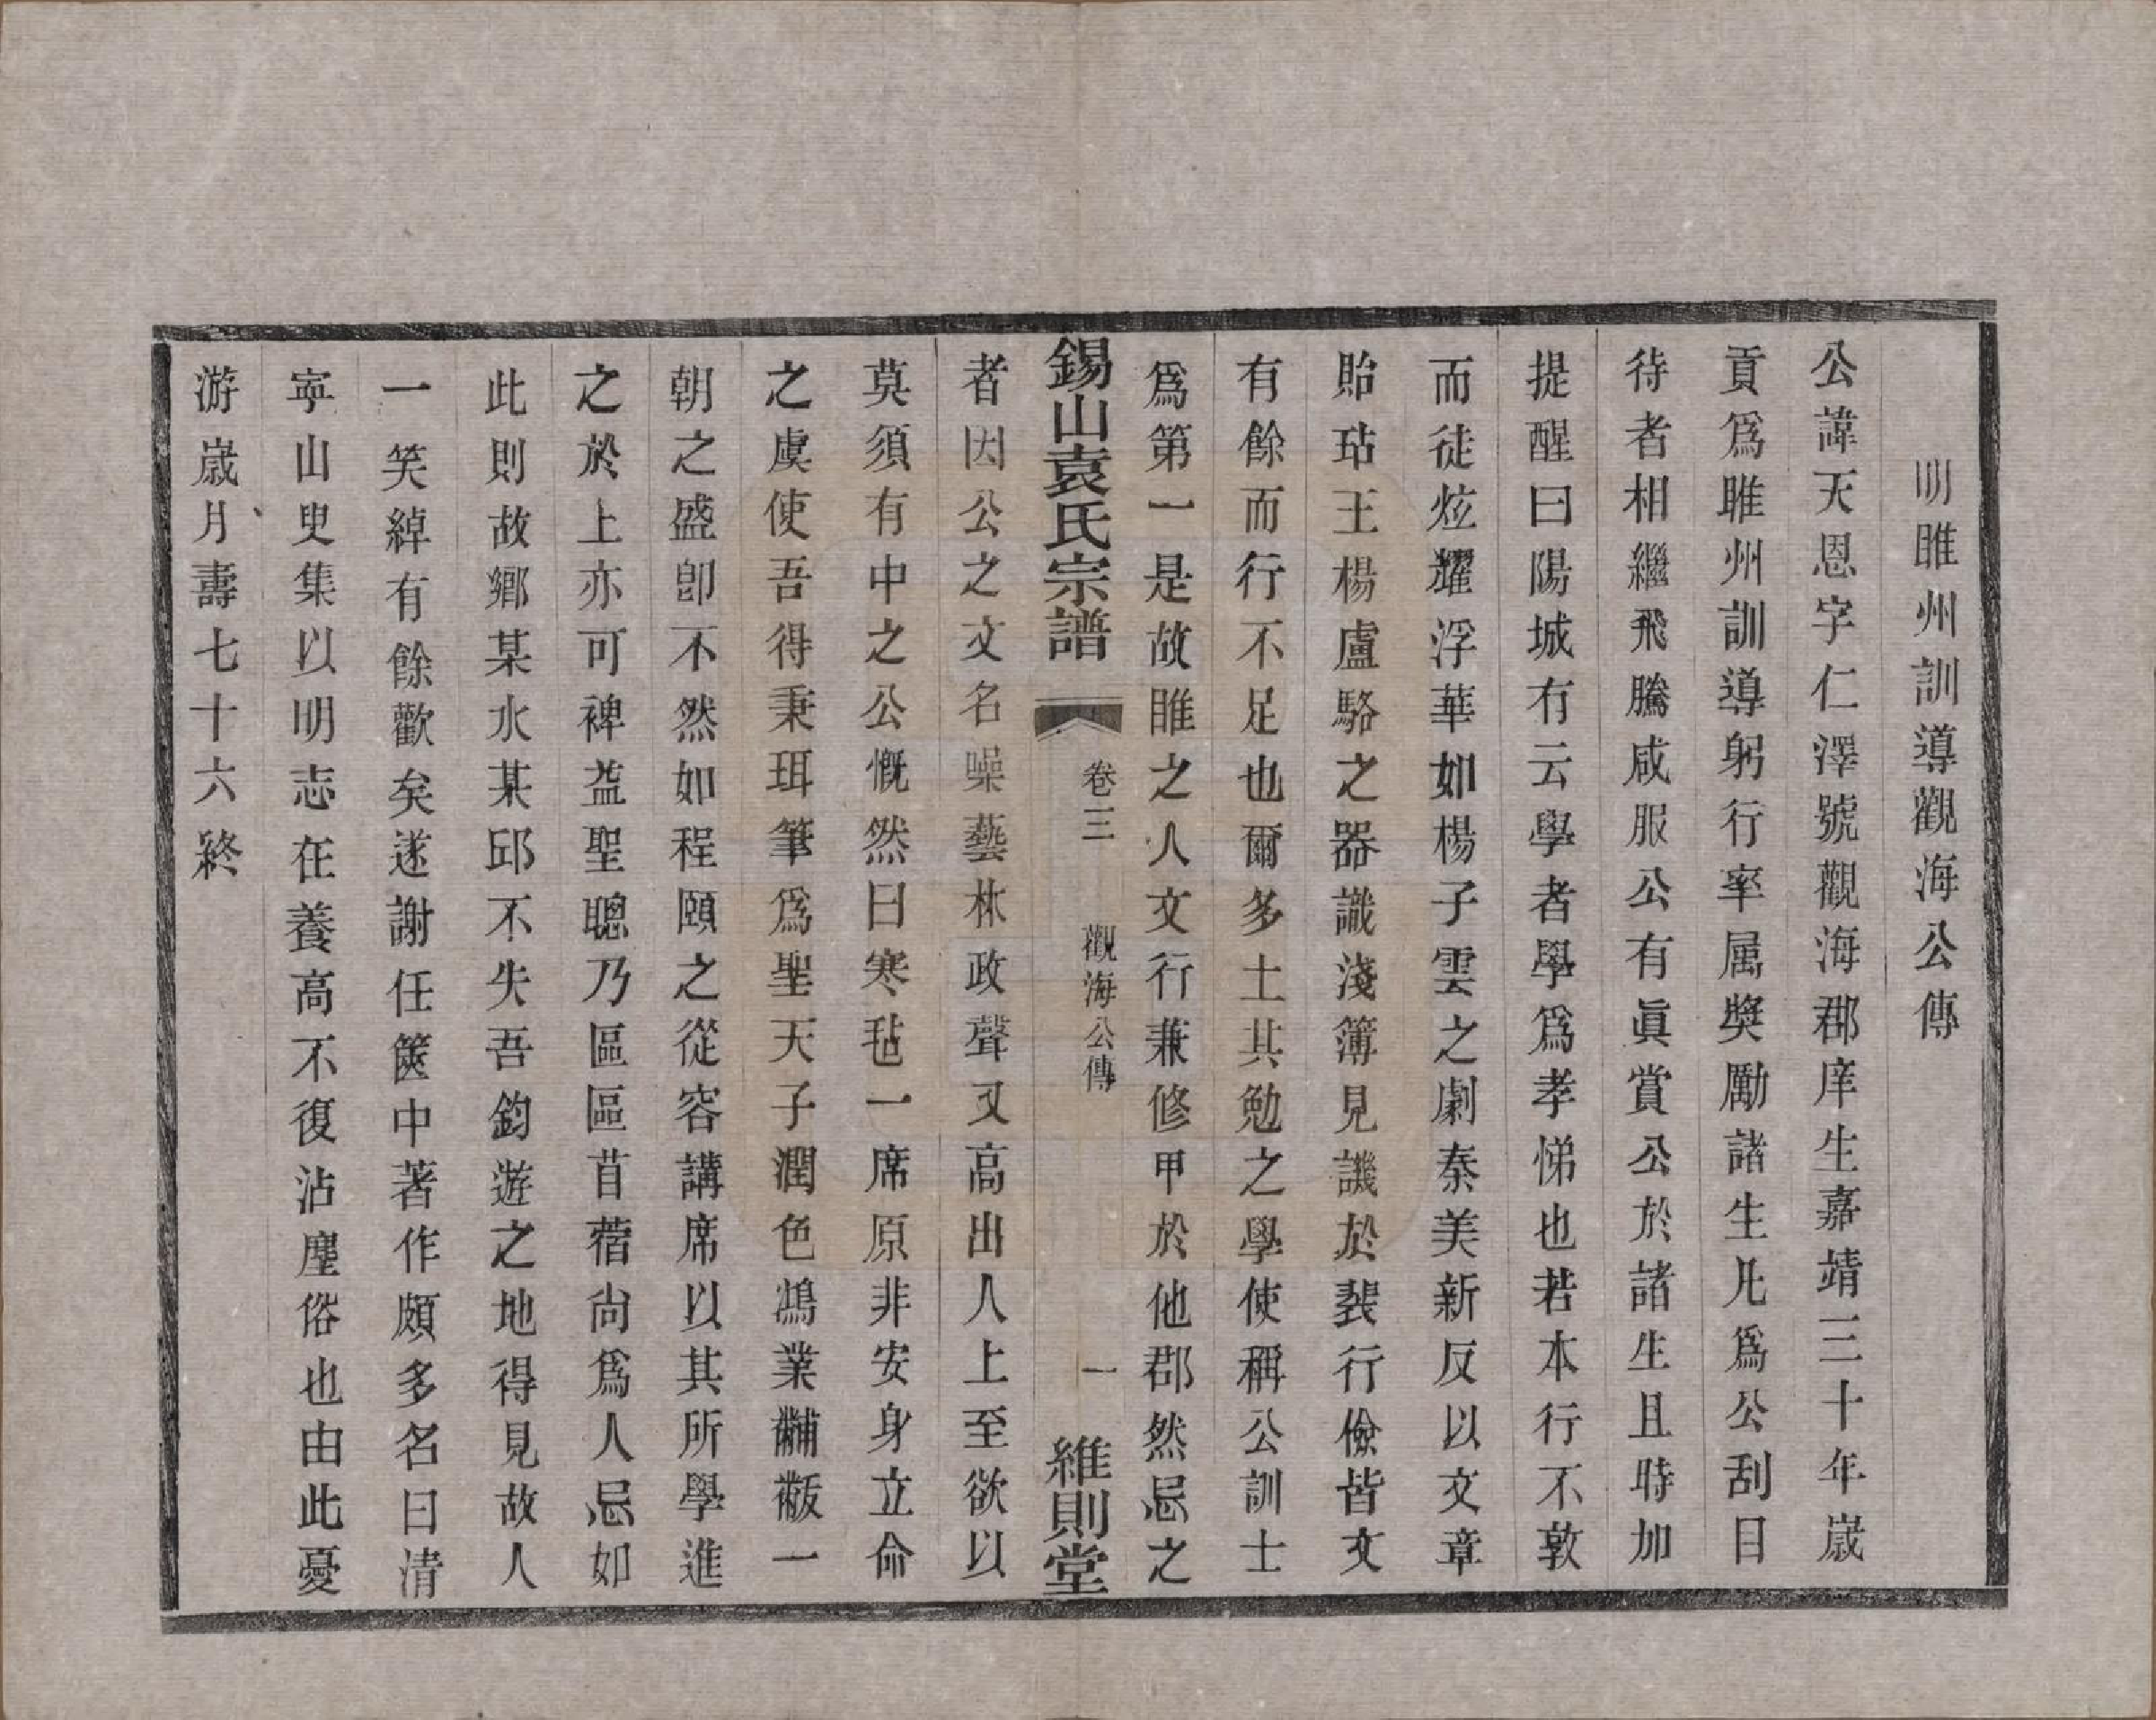 明睢州訓導觀海公傳
公諱天恩字仁澤號觀海郡庠生嘉靖三十年歲
貢爲睢州訓導躬行率属奬勵諸生凡爲公刮目
待者相繼飛騰咸服公有眞賞公於諸生且時加
提醒曰陽城有云學者學爲孝悌也若本行不敦
而徒炫耀浮華如楊子雲之劇秦美新反以文章
貽玷王楊盧駱之器識淺簿見譏於裴行儉皆文
有餘而行不足也爾多士其勉之學使稱公訓士
爲第一是故睢之人文行兼修甲於他郡然忌之
錫山袁氏宗譜
卷三
觀海公傳
一
維則堂
者因公之文名噪藝林政聲又高出人上至欲以
莫須有中之公慨然曰寒毡一席原非安身立命
之虞使吾得秉珥筆爲聖天子潤色鴻業黼黻一
朝之盛卽不然如程頤之從容講席以其所學進
之於上亦可裨益聖聰乃區區苜蓿尙爲人忌如
此則故鄉某水某邱不失吾釣遊之地得見故人
一笑綽有餘歡矣遂謝任篋中著作頗多名曰清
寜山叟集以明志在養高不復沾塵俗也由此憂
游歲月壽七十六終